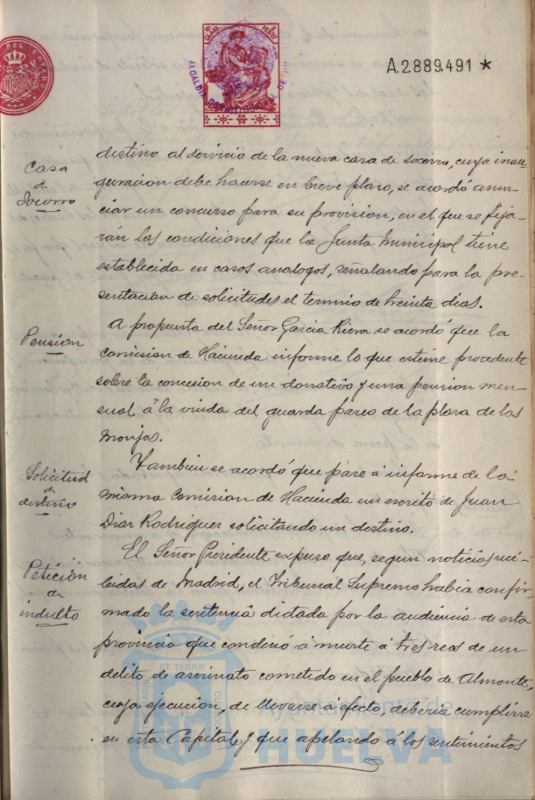 A.2.889.491 *
Casa
de
Socorro
destino al servicio de la nueva casa de socorro, cuya inau-
guracion debe hacerse en breve plazo, se acordó anun-
ciar un concurso para su provision, en el que se fija-
rán las condiciones que la Junta Municipal tiene
establecida en casos analogos, señalando para la pre-
sentacion de solicitudes el termino de treinta dias.
Pensión
A propuesta del Señor Garcia Riera se acordó que la
comision de Hacienda informe lo que estime procedente
sobre la concesion de un donativo y una pension men-
sual á la viuda del guarda paseo de la plaza de las
Monjas.
Solicitud
de
destino
Tambien se acordó que pase á informe de la
misma Comision de Hacienda un escrito de Juan
Diaz Rodriguez solicitando un destino.
Petición
de
indulto
El Señor Presidente expuso que, segun noticias reci-
bidas de Madrid, el Tribunal Supremo habia confir-
mado la sentencia dictada por la audiencia de esta
provincia que condenó á muerte á tres reos de un
delito de asesinato cometido en el pueblo de Almonte,
cuya ejecucion, de llevarse á efecto, deberia cumplirse
en esta Capital, y que apelando á los sentimientos
Ayuntamiento de
HUELVA